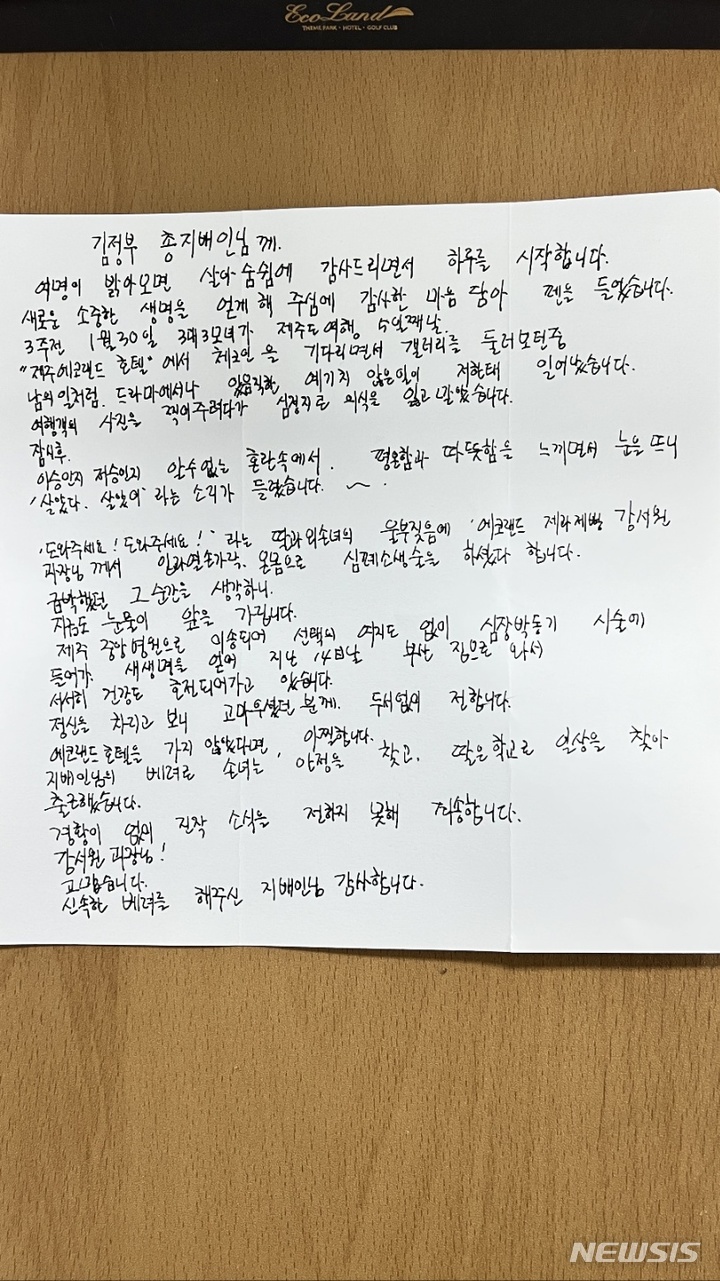 EcoLand
THEME PARK · HOTEL · GOLF CLUB
김정부 총지배인님께.
여명이 밝아오면 살아 숨쉼에 감사드리면서 하루를 시작합니다.
새로운 소중한 생명을 얻게 해 주심에 감사한 마음 담아 펜을 들었습니다.
3주전 1월 30일 3대 3모녀가 제주도 여행 5일째날.
"제주에코랜드 호텔"에서 체크인을 기다리면서 갤러리를 둘러보던중
남의 일처럼. 드라마에서나 있음직한 예기치 않은일이 저한태 일어났습니다.
여행객의 사진을 찍어주려다가 심정지로 의식을 잃고 말았습니다.
잠시후.
이승인지 저승인지 알수없는 혼란속에서. 평온함과 따뜻함을 느끼면서 눈을 뜨니
'살았다. 살았어' 라는 소리가 들렸습니다. ~ .
'도와주세요! 도와주세요!' 라는 딸과 외손녀의 울부짖음에 '에코랜드 제라제빵 강서원
과장님께서 입과 열손가락. 온몸으로 심폐소생술을 하셨다 합니다.
급박했던 그 순간을 생각하니.
지금도 눈물이 앞을 가립니다.
제주 중앙병원으로 이송되어 선택의 여지도 없이 심장박동기 시술에
들어가 새생명을 얻어 지난 14일날 부산 집으로 와서
서서히 건강도 호전되어가고 있습니다.
정신을 차리고 보니 고마우셨던 분께. 두서없이 전합니다.
에코랜드호텔을 가지 않았다면, 아찔합니다.
지배인님의 베려로 손녀는 안정을 찾고. 딸은 학교로 일상을 찾아
출근했습니다.
경황이 없어 진작 소식을 전하지 못해 죄송합니다.
강서원 과장님!
고맙습니다.
신속한 베려를 해주신 지배인님 감사합니다.
NEWSIS